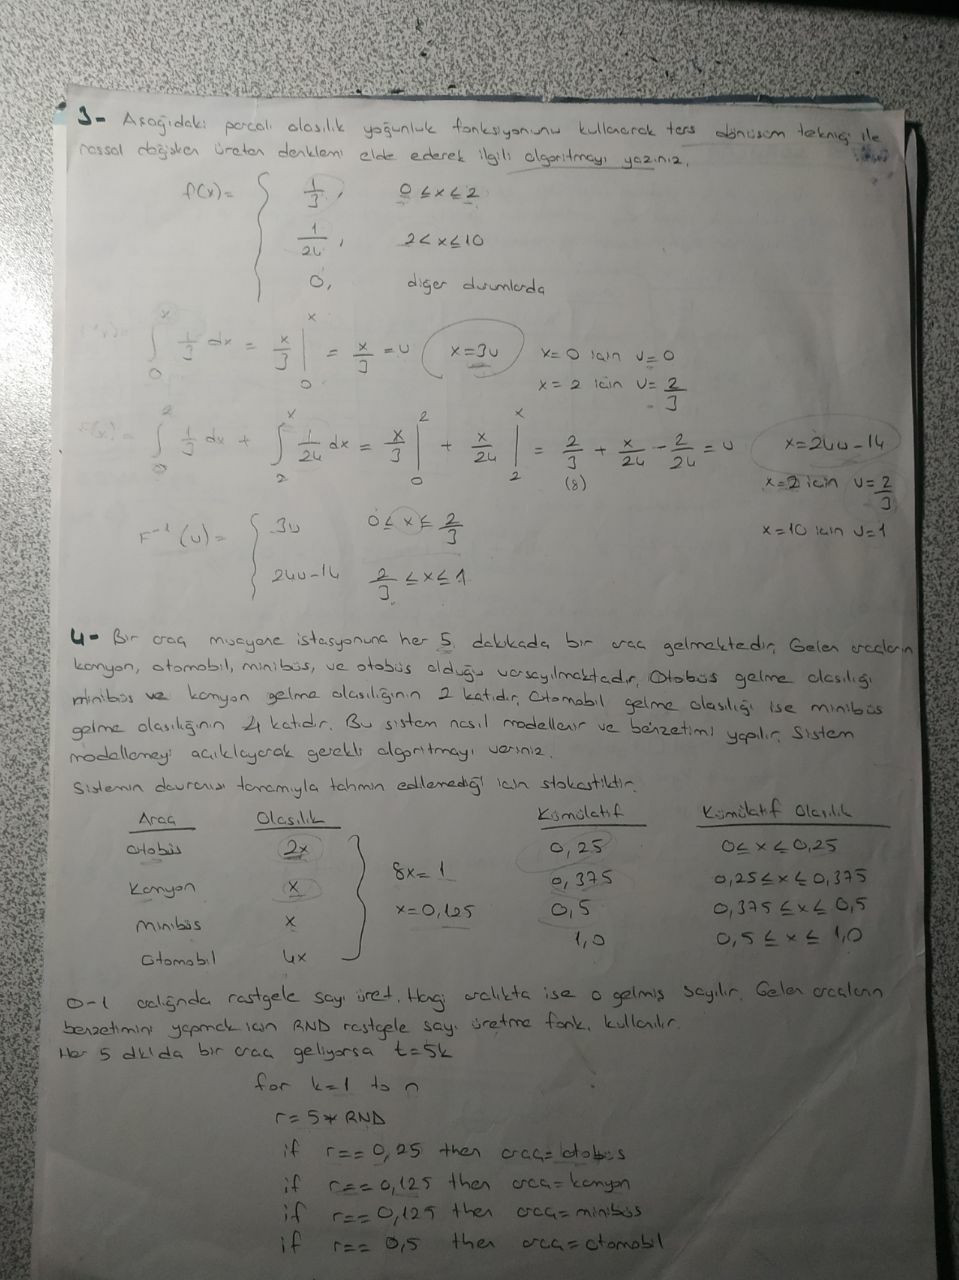 3- Aşağıdaki parçalı olasılık yoğunluk fonksiyonunu kullanarak ters dönüşüm tekniği ile
rassal değişken üreten denklemi elde ederek ilgili algoritmayı yazınız.
f(x)= { 1/3, 0 ≤ x ≤ 2
1/24, 2 < x ≤ 10
0, diğer durumlarda
∫₀ˣ 1/3 dx = x/3 |₀ˣ = x/3 = u x=3u x=0 için u=0
x=2 için u=2/3
F(x)= ∫₀² 1/3 dx + ∫₂ˣ 1/24 dx = x/3 |₀² + x/24 |₂ˣ = 2/3 + x/24 - 2/24 = u x=24u-14
(8) x=2 için u=2/3
x=10 için u=1
F⁻¹(u)= { 3u 0 ≤ x ≤ 2/3
24u-14 2/3 ≤ x ≤ 1
4- Bir araç muayene istasyonuna her 5 dakikada bir araç gelmektedir. Gelen araçların
kamyon, otomobil, minibüs, ve otobüs olduğu varsayılmaktadır. Otobüs gelme olasılığı
minibüs ve kamyon gelme olasılığının 2 katıdır. Otomobil gelme olasılığı ise minibüs
gelme olasılığının 4 katıdır. Bu sistem nasıl modellenir ve benzetimi yapılır. Sistem
modellemeyi açıklayarak gerekli algoritmayı veriniz.
Sistemin davranışı tamamıyla tahmin edilemediği için stokastiktir.
Araç Olasılık Kümülatif Kümülatif Olasılık
Otobüs 2x 0,25 0≤ x ≤ 0,25
Kamyon x 8x=1 0,375 0,25 ≤ x ≤ 0,375
Minibüs x x=0,125 0,5 0,375 ≤ x ≤ 0,5
Otomobil 4x 1,0 0,5 ≤ x ≤ 1,0
0-1 aralığında rastgele sayı üret. Hangi aralıkta ise o gelmiş sayılır. Gelen araçların
benzetimini yapmak için RND rastgele sayı üretme fonk. kullanılır.
Her 5 dk'da bir araç geliyorsa t=5k
for k=1 to n
r= 5* RND
if r== 0,25 then araç=otobüs
if r== 0,125 then araç=kamyon
if r== 0,125 then araç=minibüs
if r== 0,5 then araç=otomobil